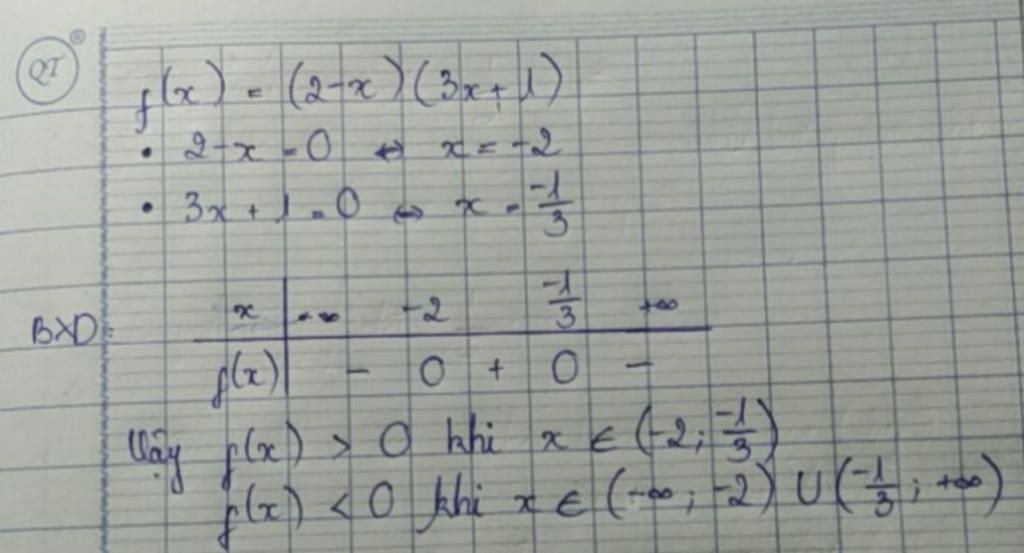 QT
f(x) = (2-x)(3x+1)
• 2-x = 0 ⇔ x = -2
• 3x + 1 = 0 ⇔ x = -1/3
BXD: x | -∞ -2 -1/3 +∞
f(x) | - 0 + 0 -
Vậy f(x) > 0 khi x ∈ (-2; -1/3)
f(x) < 0 khi x ∈ (-∞; -2) ∪ (-1/3; +∞)